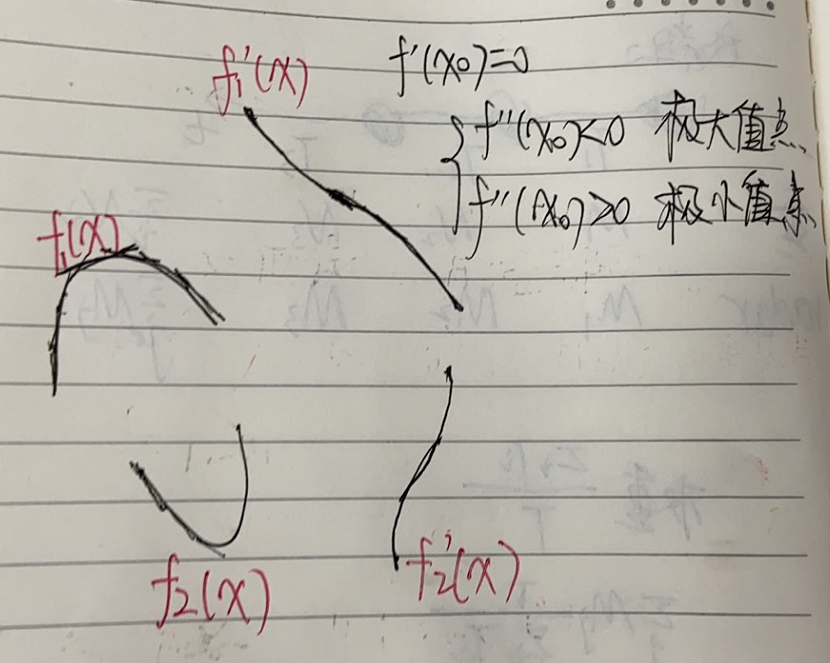 f₁'(x)
f'(x₀)=0
f''(x₀)<0 极大值点
f''(x₀)>0 极小值点
f₁(x)
f₂(x)
f₂'(x)